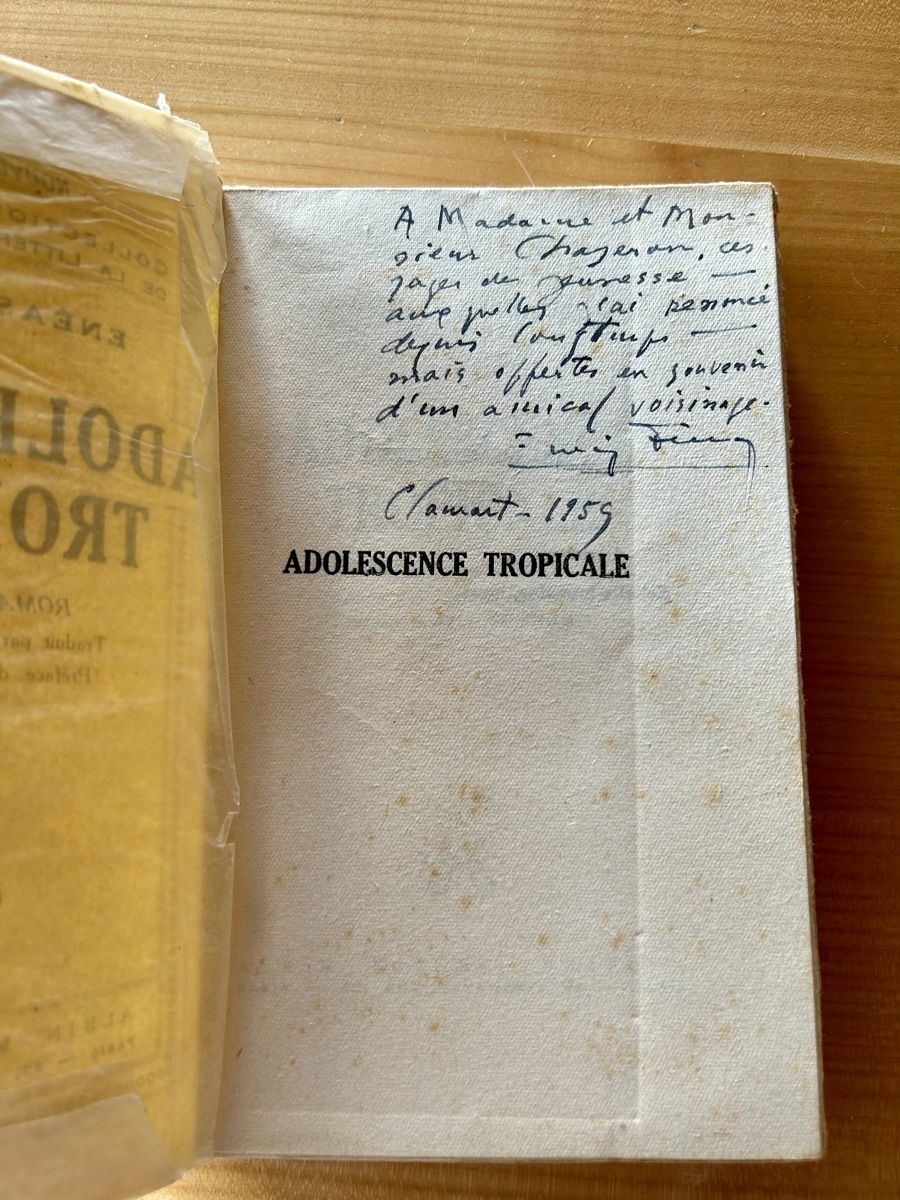 A Madame et Mon-
sieur Chazeron, ces
pages de jeunesse —
auxquelles j'ai renoncé
depuis longtemps —
mais offertes en souvenir
d'un amical voisinage.
Clamart - 1959
ADOLESCENCE TROPICALE
NOUV
COLLECTIO
DE LA LITTÉR
ENÉAS
ADOLE
TRO
ROMA
Traduit par
(Préface d
ALBIN M
PARIS —